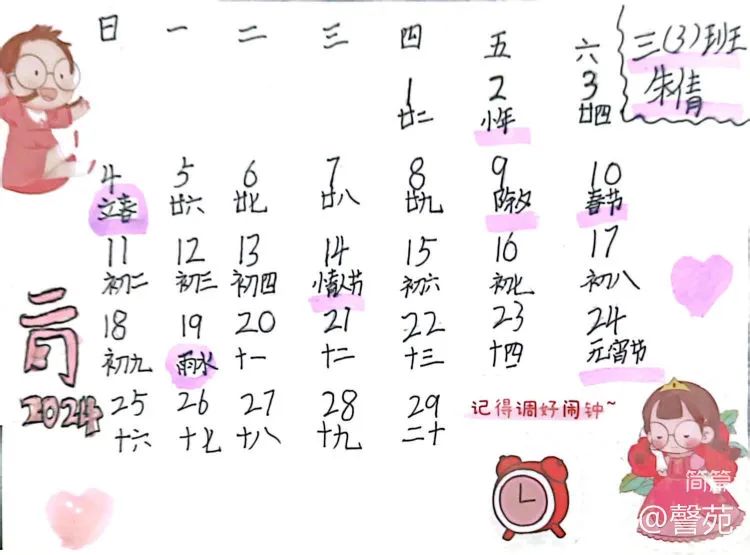 日 一 二 三 四 五 六
三(3)班王
朱倩
1 2 3
廿二 小年 廿四
4 5 6 7 8 9 10
立春 廿六 廿七 廿八 廿九 除夕 春节
11 12 13 14 15 16 17
初二 初三 初四 情人节 初六 初七 初八
18 19 20 21 22 23 24
初九 雨水 十一 十二 十三 十四 元宵节
二月
2024
25 26 27 28 29
十六 十七 十八 十九 二十
记得调好闹钟~
简篇
@馨苑